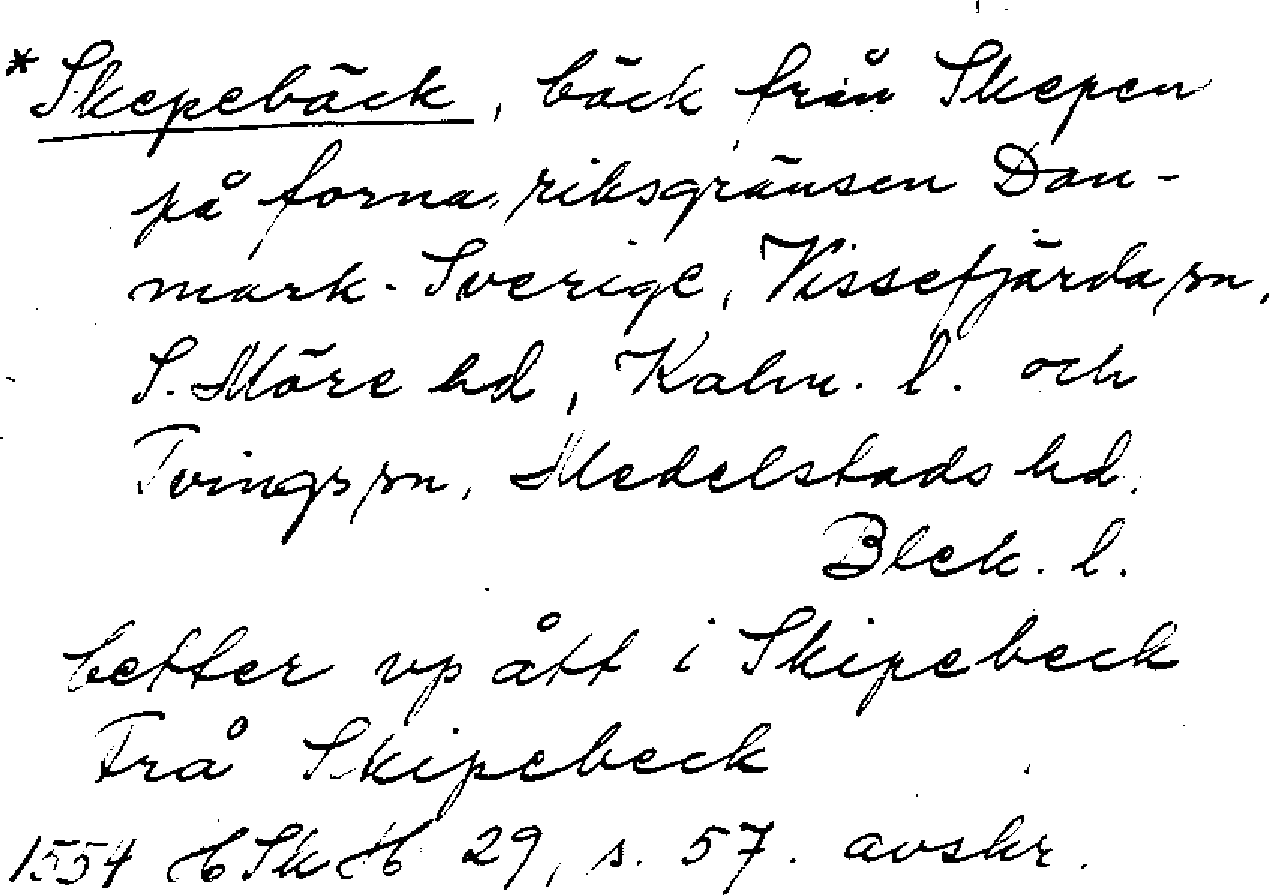 *Skepebäck, bäck från Skepen
på forna riksgränsen Dan-
mark-Sverige, Vissefjärda sn,
S. Möre hd, Kalm. l. och
Tvings sn, Medelstads hd.
Blek. l.
better vp ått i Skipebeck
Frå Skipebeck
1554 HSkH 29, s. 57. avskr.